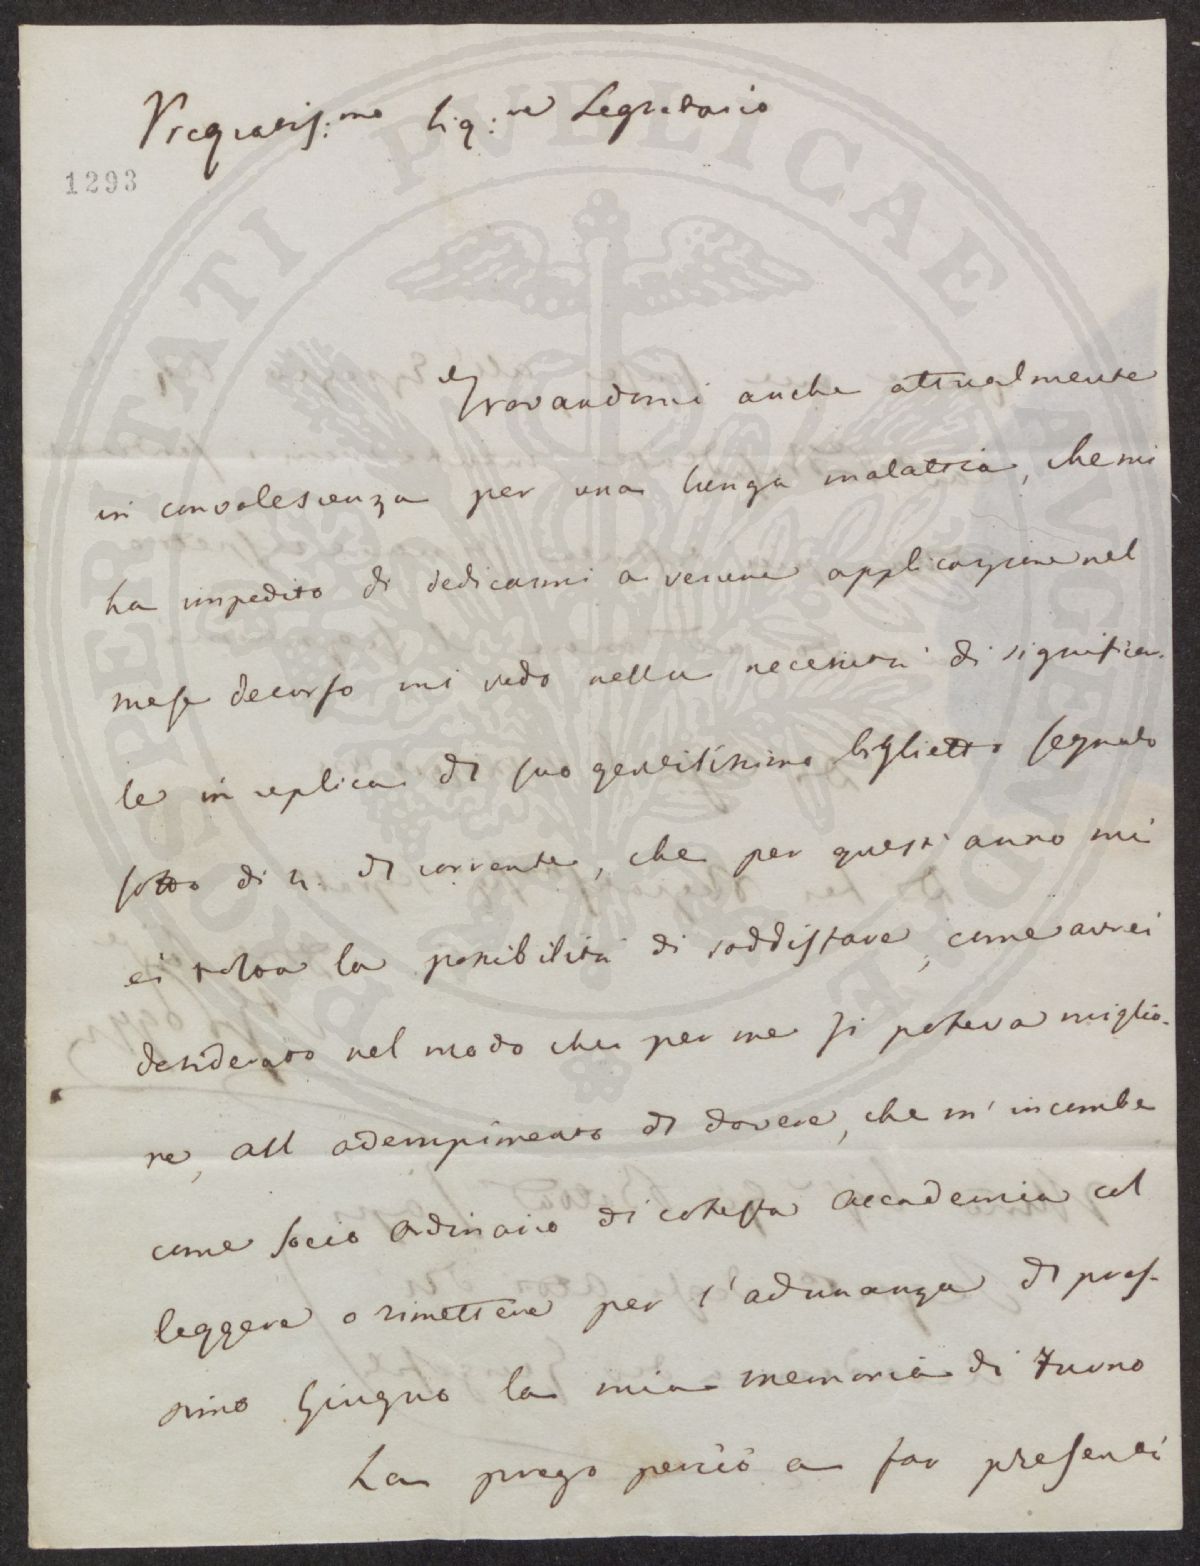 Pregiatiss:mo Sig:re Segretario
1293
Trovandomi anche attualmente
in convalescenza per una lunga malattia, che mi
ha impedito di dedicarmi a veruna applicazione nel
mese decorso mi vedo nella necessità di significar-
le in replica al suo gentilissimo biglietto segnato
sotto di 4. del corrente, che per quest'anno mi
è tolta la possibilità di soddisfare, come avrei
desiderato nel modo che per me si poteva miglio-
re, all adempimento del dovere, che m'incombe
come socio ordinario di cotesta accademia col
leggere o rimettere per l'adunanza del pros-
simo Giugno la mia memoria di turno
La prego perciò a far presenti
PROSPERITATI PVBLICAE AVGENDAE